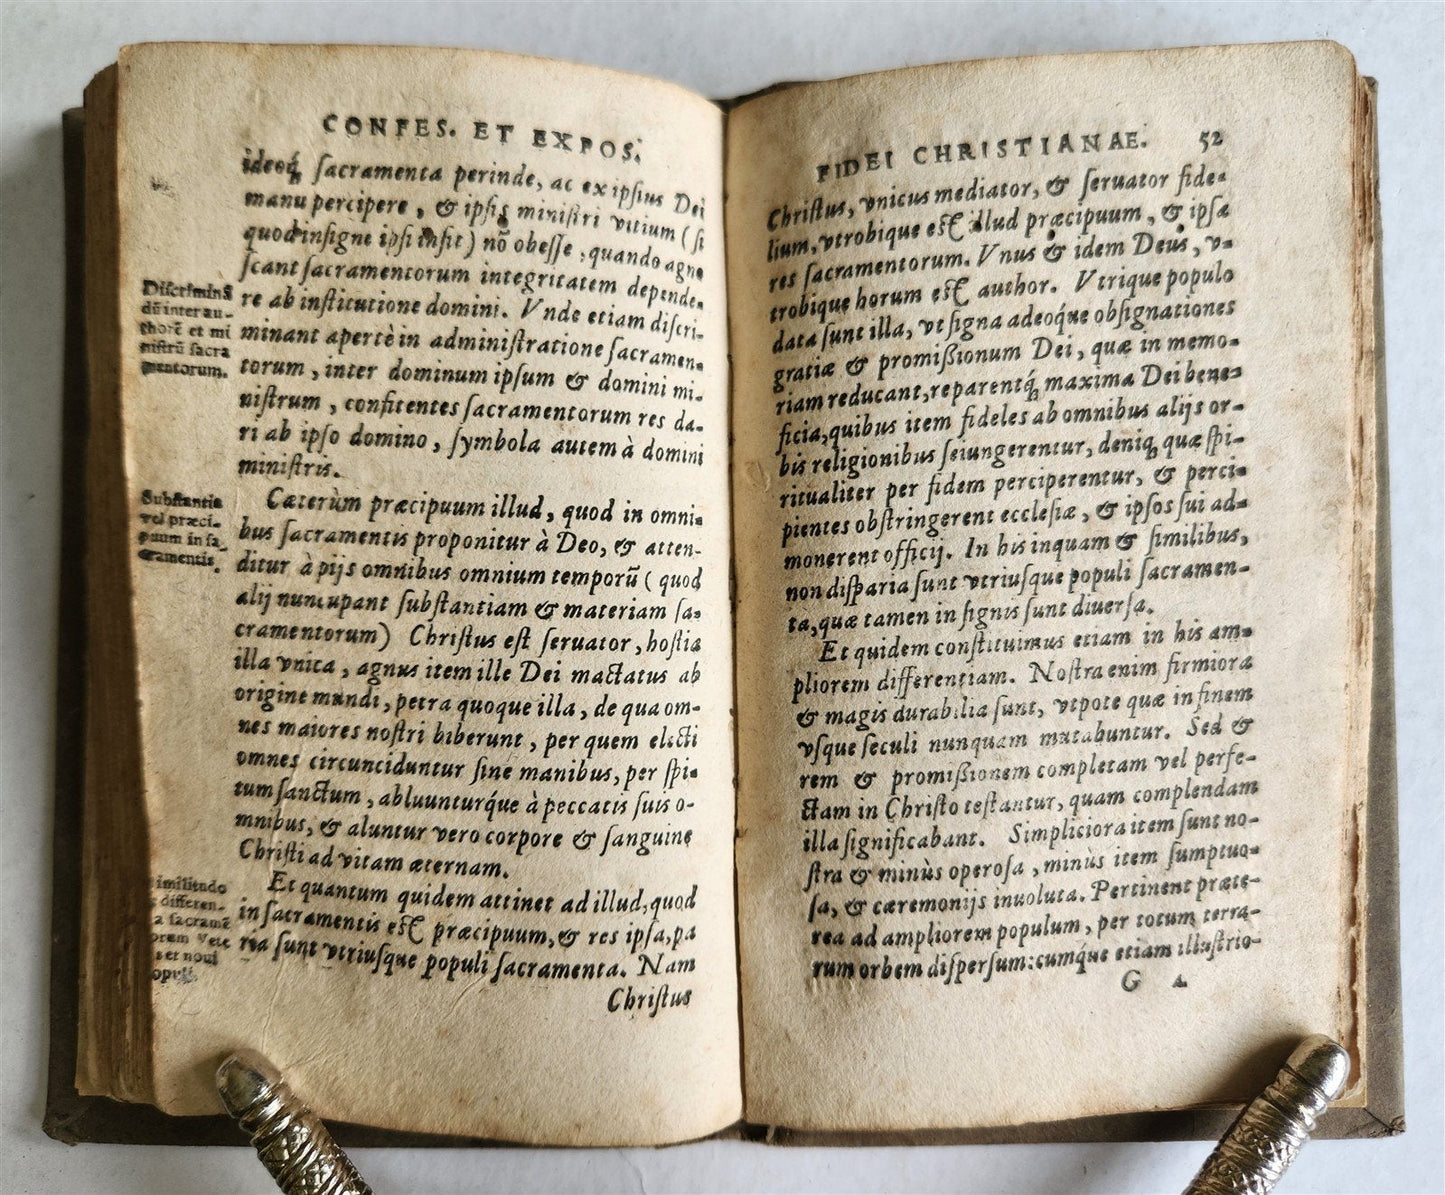 CONFES. ET EXPOS.
ideoq́; ſacramenta perinde, ac ex ipſius Dei
manu percipere, & ipſis miniſtri vitium (ſi
quod inſigne ipſi inſit) nõ obeſſe, quando agno
ſcant ſacramentorum integritatem depende-
re ab inſtitutione domini. Vnde etiam diſcri-
minant apertè in adminiſtratione ſacramen-
torum, inter dominum ipſum & domini mi-
niſtrum, confitentes ſacramentorum res da-
ri ab ipſo domino, ſymbola autem à domini
miniſtris.
Diſcrimina
dũ inter au-
thorẽ et mi
niſtrũ ſacra
mentorum.
Cæterùm præcipuum illud, quod in omni-
bus ſacramentis proponitur à Deo, & atten-
ditur à pijs omnibus omnium temporũ (quod
alij nuncupant ſubſtantiam & materiam ſa-
cramentorum) Chriſtus eſt ſeruator, hoſtia
illa vnica, agnus item ille Dei mactatus ab
origine mundi, petra quoque illa, de qua om-
nes maiores noſtri biberunt, per quem electi
omnes circunciduntur ſine manibus, per ſpi-
tum ſanctum, abluunturq́ue à peccatis ſuis o-
mnibus, & aluntur vero corpore & ſanguine
Chriſti ad vitam æternam.
Subſtantia
vel præci-
puum in ſa-
cramentis.
Et quantum quidem attinet ad illud, quod
in ſacramentis eſt præcipuum, & res ipſa, pa
ria ſunt vtriuſque populi ſacramenta. Nam
Chriſtus
imilitudo
differen-
a ſacramẽ
orum vete
s et noui
opuli.
FIDEI CHRISTIANAE. 52
Chriſtus, vnicus mediator, & ſeruator fide-
lium, vtrobique eſt illud præcipuum, & ipſa
res ſacramentorum. Vnus & idem Deus, v-
trobique horum eſt author. Vtrique populo
data ſunt illa, vt ſigna adeoq́ue obſignationes
gratiæ & promiſsionum Dei, quæ in memo-
riam reducant, reparentq́; maxima Dei bene-
ficia, quibus item fideles ab omnibus alijs or-
bis religionibus ſeiungerentur, deniq; quæ ſpi-
ritualiter per fidem perciperentur, & perci-
pientes obſtringerent eccleſiæ, & ipſos ſui ad-
monerent officij. In his inquam & ſimilibus,
non diſparia ſunt vtriuſque populi ſacramen-
ta, quæ tamen in ſignis ſunt diuerſa.
Et quidem conſtituimus etiam in his am-
pliorem differentiam. Noſtra enim firmiora
& magis durabilia ſunt, vtpote quæ in finem
vſque ſeculi nunquam mutabuntur. Sed &
rem & promiſsionem completam vel perfe-
ctam in Chriſto teſtantur, quam complendam
illa ſignificabant. Simpliciora item ſunt no-
ſtra & minùs operoſa, minùs item ſumptuo-
ſa, & cæremonijs inuoluta. Pertinent præte-
rea ad ampliorem populum, per totum terra-
rum orbem diſperſum: cumq́ue etiam illuſtrio-
G